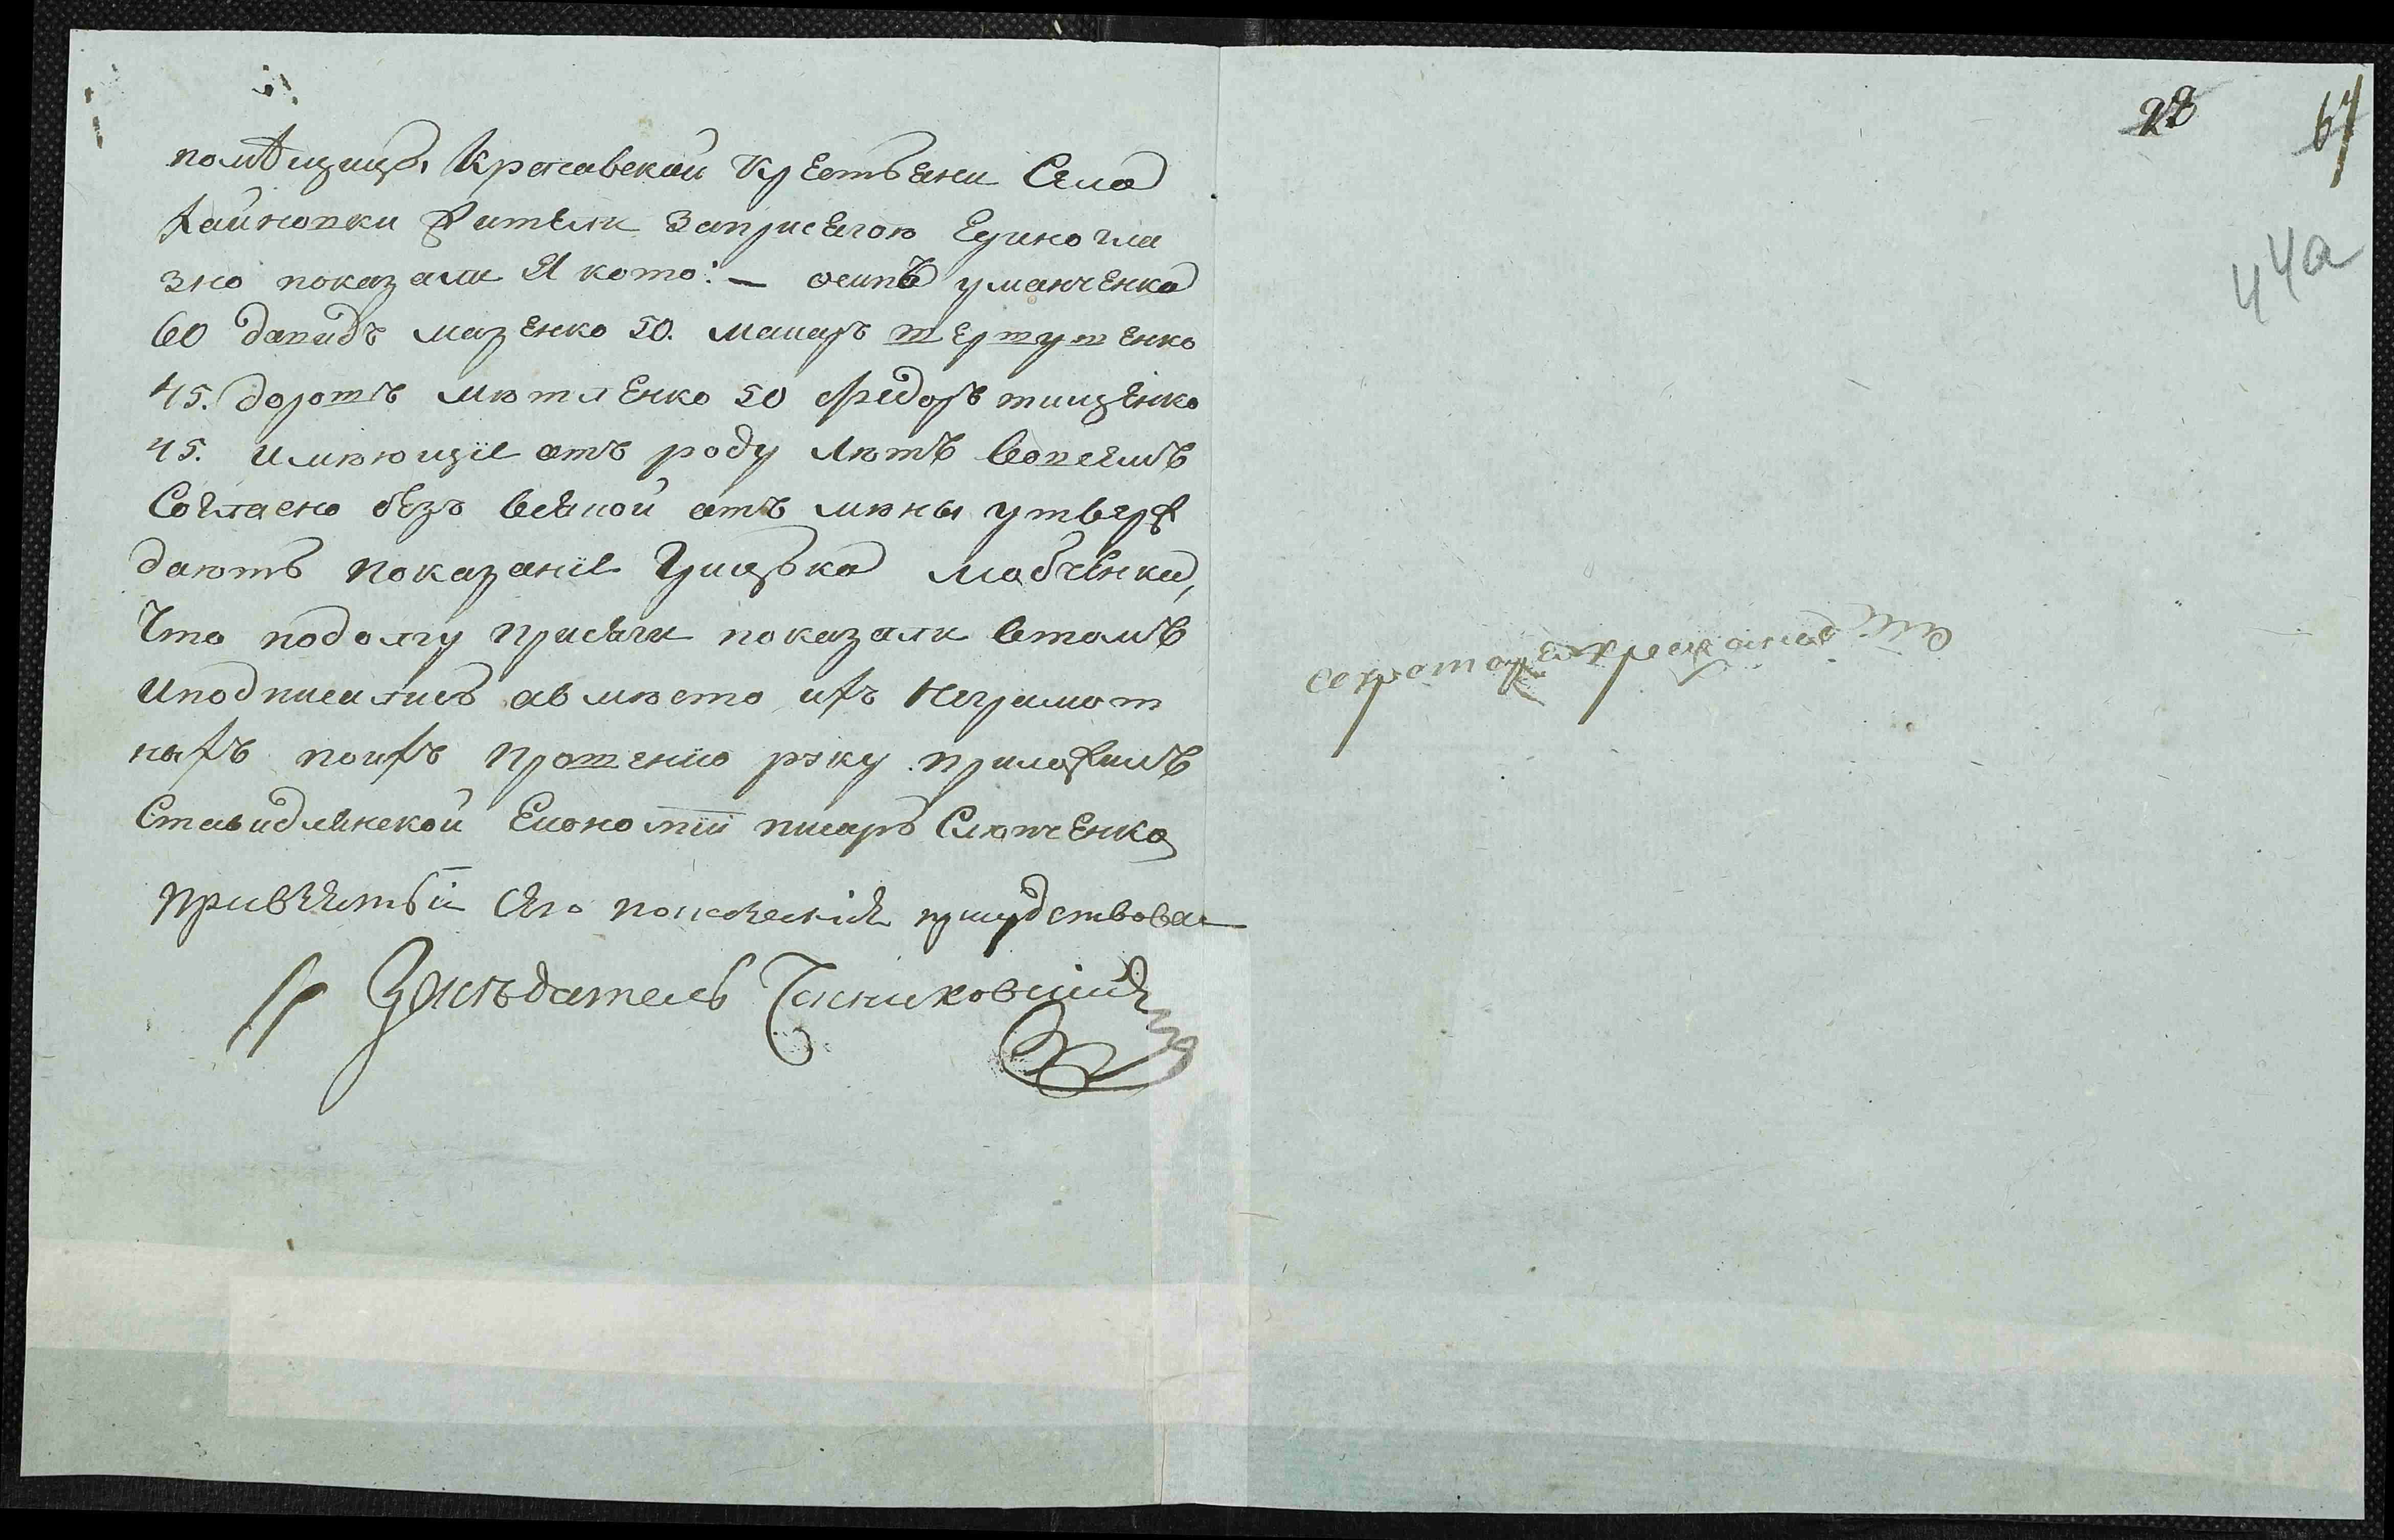 помѣщицы Красавской крестьяни Села
хайновки жители заприсягою Единогла
зно показали Я кото: — осипъ уманченко
60 давидъ мазенко 50. макаръ тертутенко
45. дорошъ мютленко 50 федоръ тищенко
45. имѣющіе отъ роду лѣтъ вовсемъ
Согласно безъ всякой отъ мѣны утверж
даютъ показаніе Грицька мабченка,
Что подолгу присяги показали втомъ
иподписались авмѣсто ихъ неграмот
ныхъ поихъ прошенію руку приложилъ
Ставидлянской Економіи писарь Слютченко
при взятьи сего показанія присудствовал
засѣдатель
28
67
44а